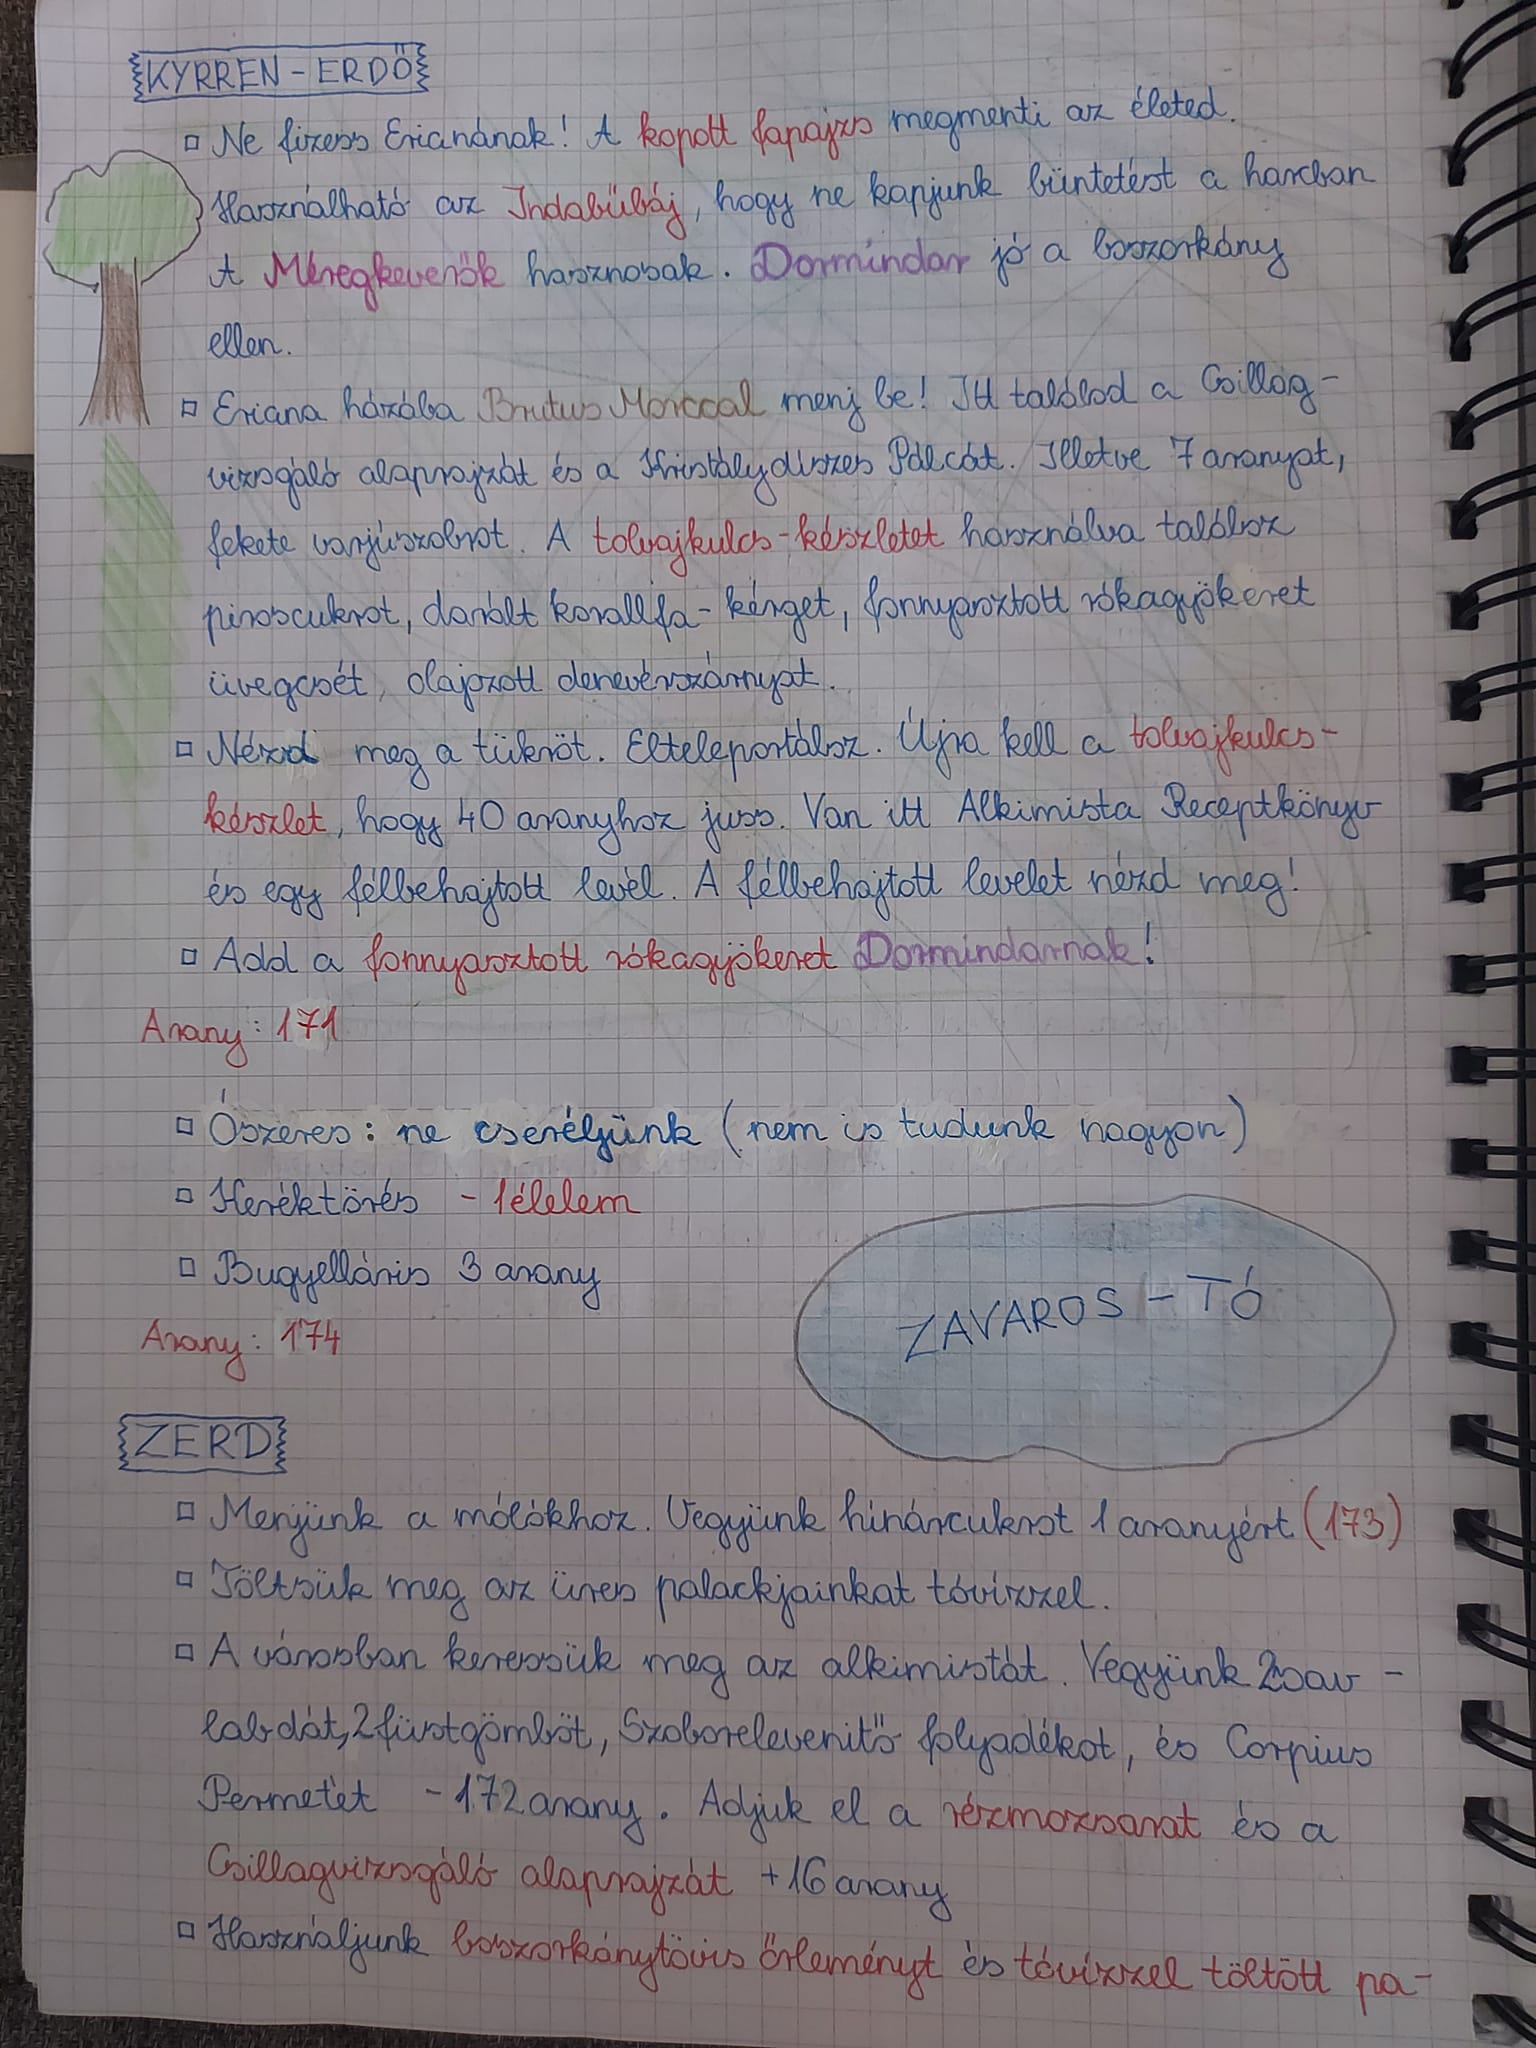 KYRREN - ERDŐ
Ne fizess Ericanának! A kopott fapajzs megmenti az életed.
Használható az Indabűbáj, hogy ne kapjunk büntetést a harcban
A Méregkeverők hasznosak. Dormindar jó a boszorkány
ellen.
Eriana házába Brutus Morccal menj be! Itt találod a Csillag-
vizsgáló alaprajzát és a Kristálydíszes Pálcát. Illetve 7 aranyat,
fekete varjúszobrot. A tolvajkulcs-készletet használva találsz
piroscukrot, darált korallfa-kérget, fonnyasztott rókagyökeret
üvegcsét, olajozott denevérszárnyat.
Nézd meg a tükröt. Elteleportálsz. Újra kell a tolvajkulcs-
készlet, hogy 40 aranyhoz juss. Van itt Alkimista Receptkönyv
és egy félbehajtott levél. A félbehajtott levelet nézd meg!
Add a fonnyasztott rókagyökeret Dormindarnak!
Arany: 171
Ószeres: ne cseréljünk (nem is tudunk nagyon)
Keréktörés - 1 élelem
Bugyelláris 3 arany
Arany: 174
ZAVAROS - TÓ
ZERD
Menjünk a mólókhoz. Vegyünk hínárcukrot 1 aranyért (173)
Töltsük meg az üres palackjainkat tóvízzel.
A városban keressük meg az alkimistát. Vegyünk 2 sav -
labdát, 2 füstgömböt, Szoborelevenítő folyadékot, és Corpius
Permetet - 172 arany. Adjuk el a rézmozsarat és a
Csillagvizsgáló alaprajzát + 16 arany
Használjunk boszorkánytövis őrleményt és tóvízzel töltött pa-